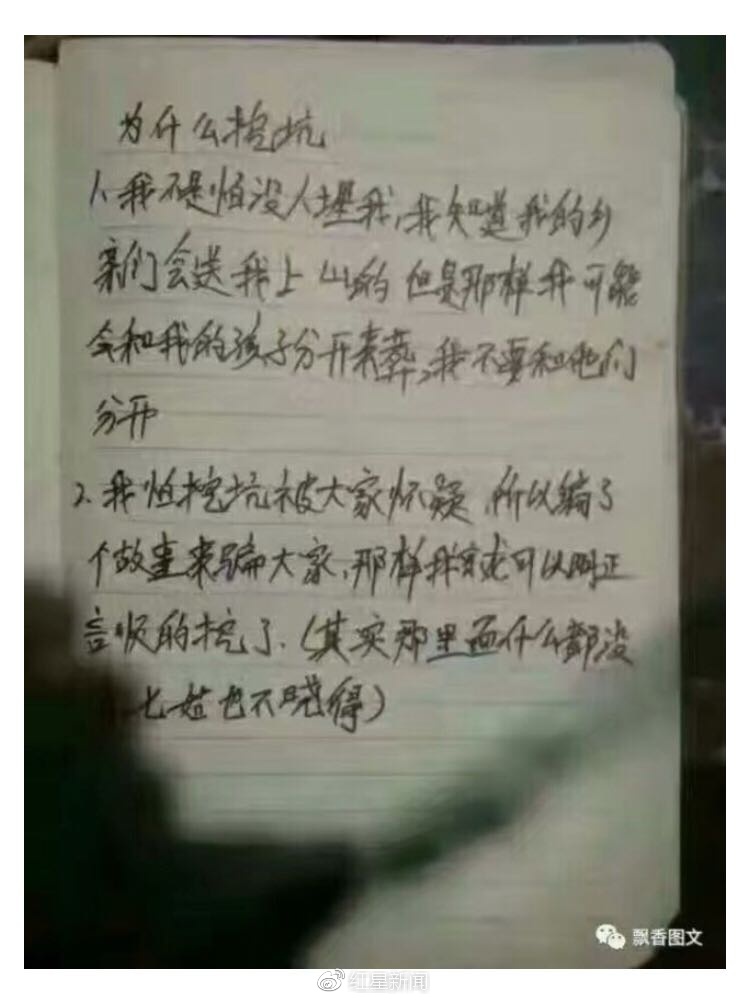 为什么挖坑
1、我不是怕没人埋我，我知道我的乡
亲们会送我上山的 但是那样我可能
会和我的孩子分开来葬，我不要和他们
分开
2、我怕挖坑被大家怀疑，所以编了
个故事来骗大家，那样我就可以明正
言顺的挖了。（其实那里面什么都没
七姑也不晓得）
飘香图文
红星新闻